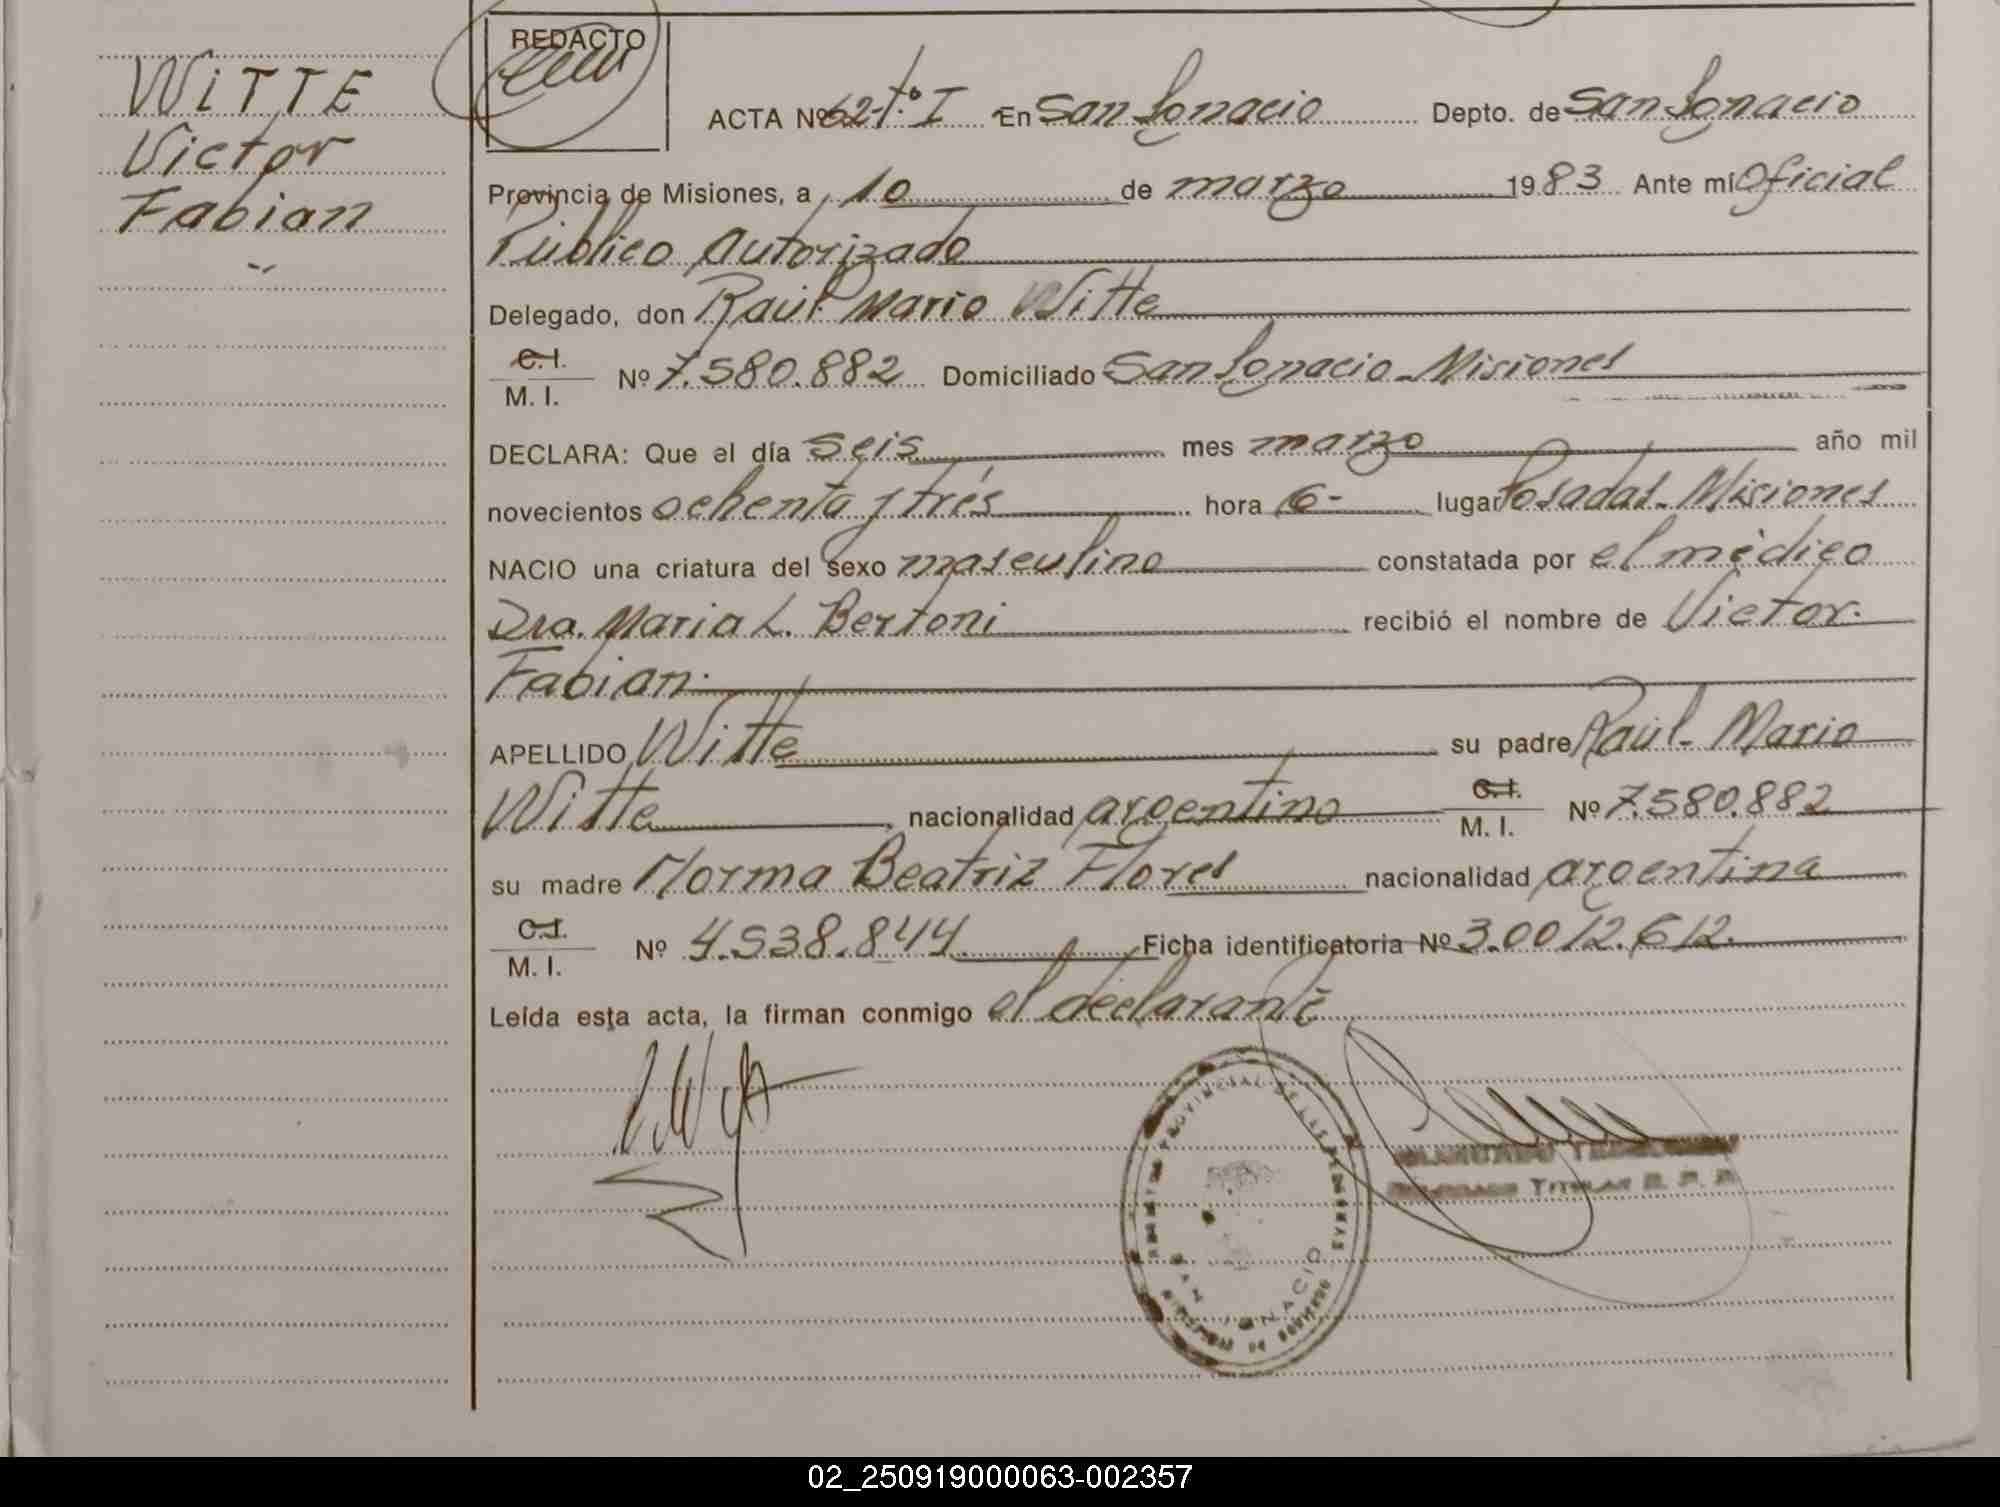 WITTE
Victor
Fabian
REDACTO
ACTA Nº 62-tº I En San Ignacio Depto. de San Ignacio
Provincia de Misiones, a 10 de marzo 1983 Ante mí Oficial
Público Autorizado
Delegado, don Raúl Mario Witte
C.I.
M. I. Nº 7.580.882 Domiciliado San Ignacio - Misiones
DECLARA: Que el día seis mes marzo año mil
novecientos ochenta y trés hora 6- lugar Posadas - Misiones
NACIO una criatura del sexo masculino constatada por el médico
Dra. Maria L. Bertoni recibió el nombre de Victor
Fabian
APELLIDO Witte su padre Raúl Mario
Witte nacionalidad argentino C.I. M. I. Nº 7.580.882
su madre Norma Beatriz Flores nacionalidad argentina
C.I.
M. I. Nº 4.938.844 Ficha identificatoria Nº 3.0012.612
Leída esta acta, la firman conmigo el declarante
PROVINCIAL DE LAS PERSONAS
SAN IGNACIO
MINISTERIO DE GOBIERNO
TITULAR R. P. P.
02_250919000063-002357